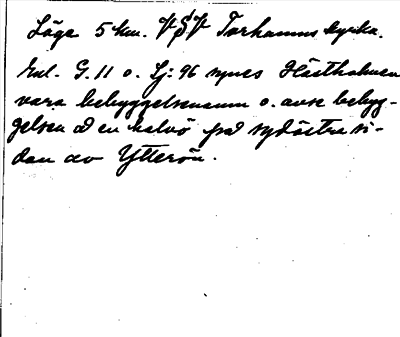 Läge 5 km. VSV Torhamns kyrka.
Enl. G. 11 o. Lj: 96 synes Hästholmen
vara bebyggelsenamn o. avse bebyg-
gelsen å en halvö på sydöstra si-
dan av Ytterön.